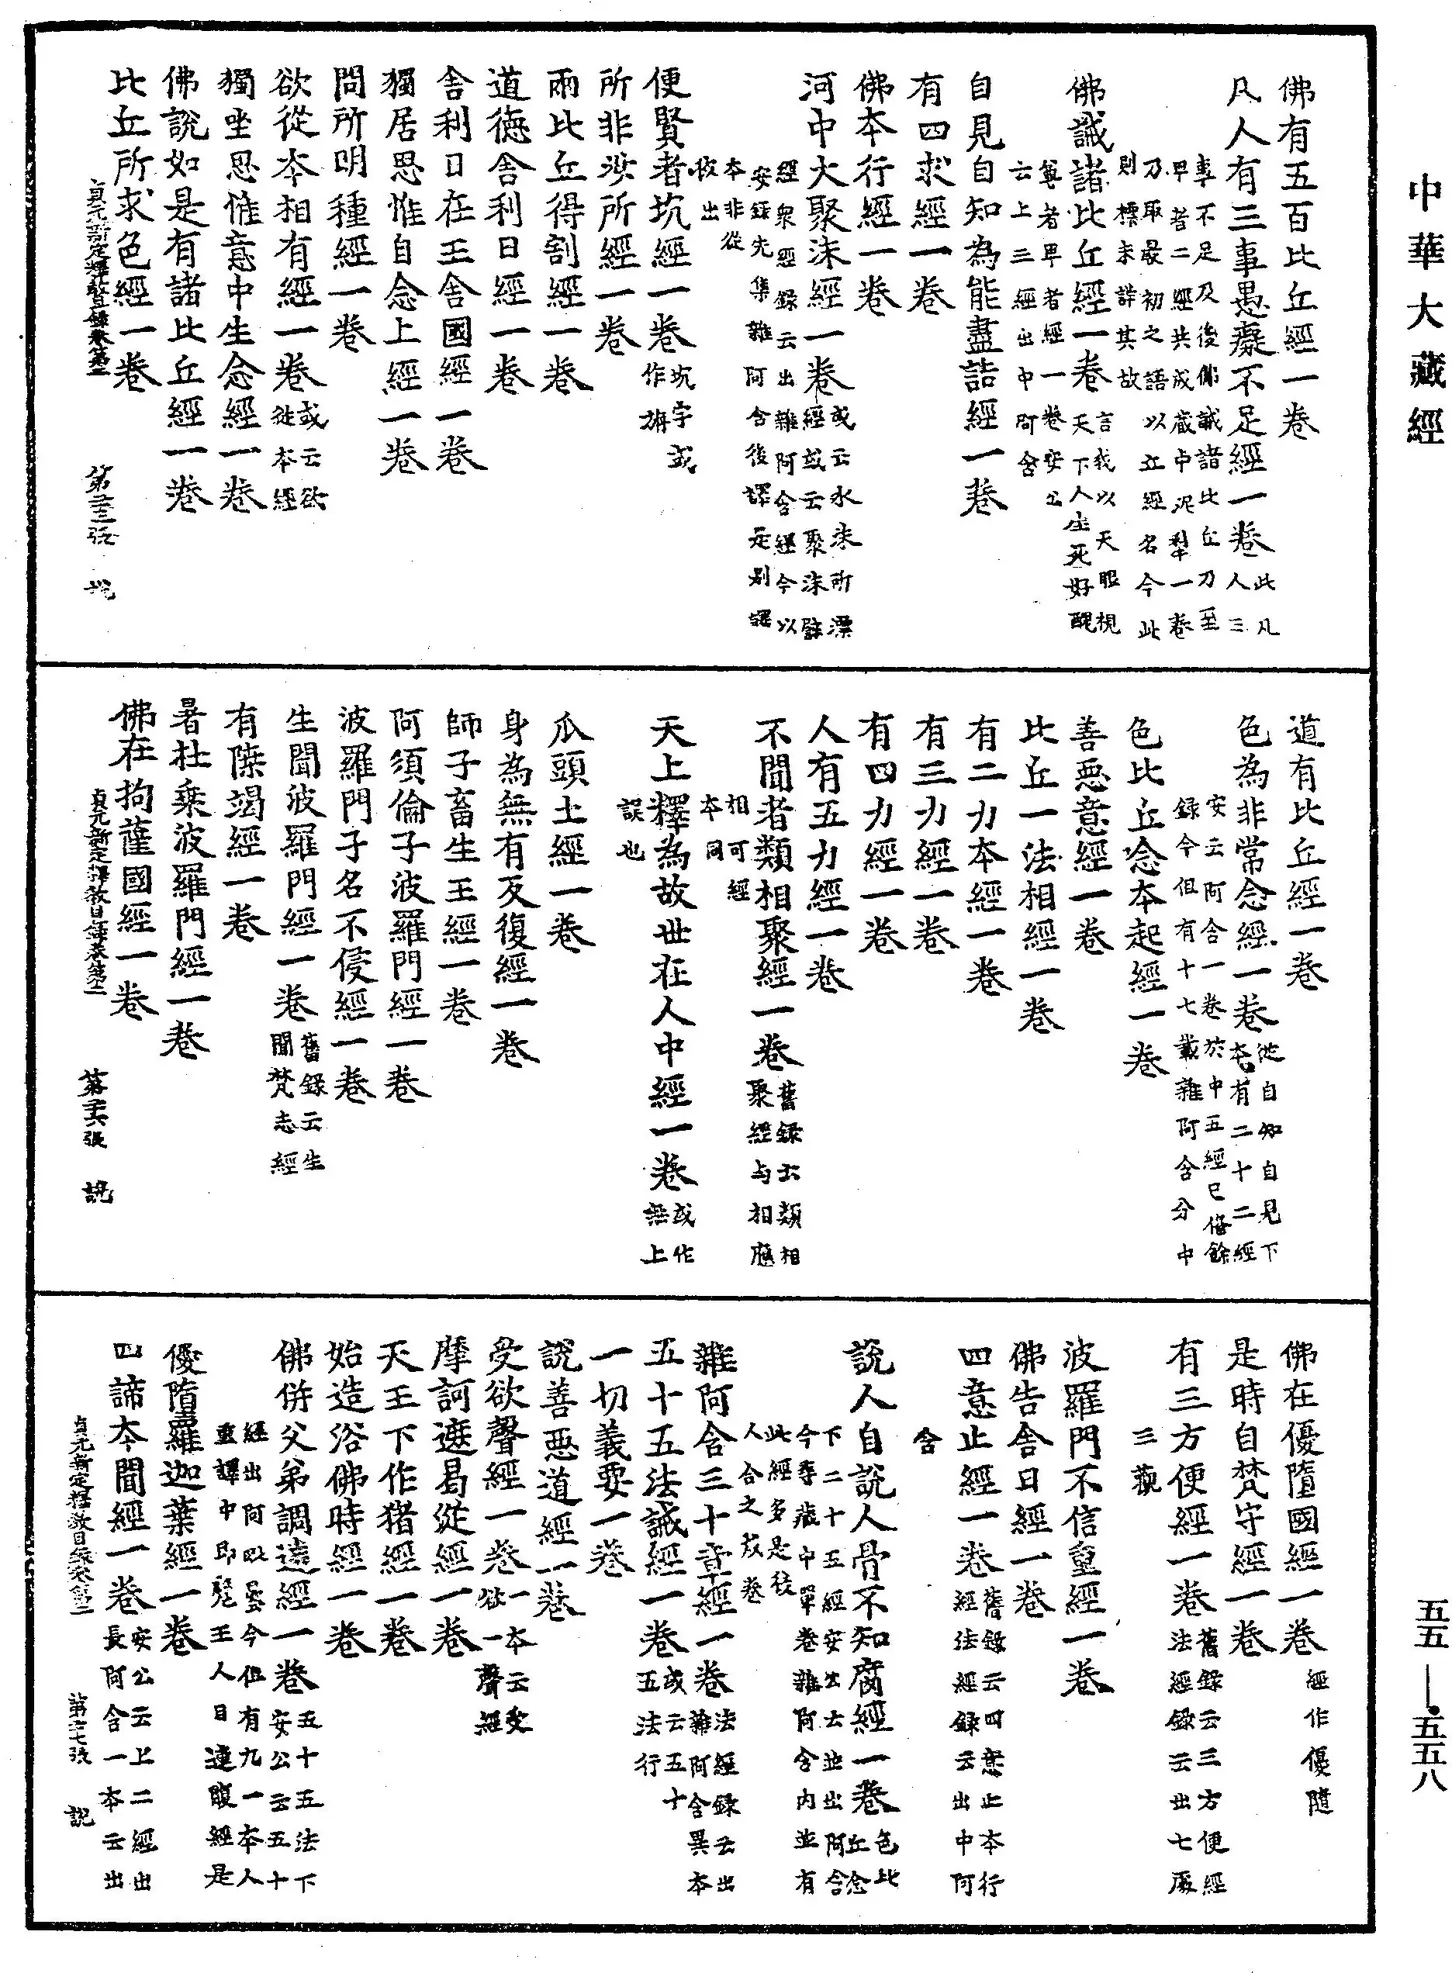 中華大藏經
佛有五百比丘經一卷
凡人有三事愚癡不足經一卷此凡人三
事不足及後佛誡諸比丘乃至
早者二經共成藏中泥犁一卷
乃取最初之語以立經名今此
則標未詳其故
佛誡諸比丘經一卷言我以天眼視天下人生死好醜
尊者卑者經一卷安公
云上三經出中阿含
自見自知為能盡詰經一卷
有四求經一卷
佛本行經一卷
河中大聚沫經一卷或云水沫所漂經或云聚沫譬
經眾經錄云出雜阿含經今以
安錄先集雜阿含後譯是別譯
本非從
彼出
便賢者坑經一卷坑字或作旃
所非汝所經一卷
兩比丘得割經一卷
道德舍利日經一卷
舍利日在王舍國經一卷
獨居思惟自念上經一卷
問所明種經一卷
欲從本相有經一卷或云欲從本經
獨坐思惟意中生念經一卷
佛說如是有諸比丘經一卷
比丘所求色經一卷
貞元新定釋教目錄卷第二 第三張 說
道有比丘經一卷
色為非常念經一卷從自知自見下本有二十二經
安云阿含一卷於中五經已備餘
錄今但有十七載雜阿含分中
色比丘念本起經一卷
善惡意經一卷
比丘一法相經一卷
有二力本經一卷
有三力經一卷
有四力經一卷
人有五力經一卷
不聞者類相聚經一卷舊錄云類相聚經与相應
相可經
本同
天上釋為故世在人中經一卷或作無上
誤也
瓜頭土經一卷
身為無有反復經一卷
師子畜生王經一卷
阿須倫子波羅門經一卷
波羅門子名不侵經一卷
生聞波羅門經一卷舊錄云生聞梵志經
有𨻶竭經一卷
暑杜乘波羅門經一卷
佛在拘薩國經一卷
貞元新定釋教目錄卷第二 第六張 說
佛在優墮國經一卷經作優隨
是時自梵守經一卷
有三方便經一卷舊錄云三方便經法經錄云出七處
三觀
波羅門不信重經一卷
佛告舍日經一卷
四意止經一卷舊錄云四意止本行經法經錄云出中阿
含
說人自說人骨不知腐經一卷色比丘念
下二十五經安公云並出阿含
今尋藏中單卷雜阿含內並有
此經多是後
人合之成卷
雜阿含三十章經一卷法經錄云出雜阿含異本
五十五法誡經一卷或云五十五法行
一切義要一卷
說善惡道經一卷
受欲聲經一卷一本云受欲一聲經
摩訶遮曷從經一卷
天王下作猪經一卷
始造浴佛時經一卷
佛併父弟調達經一卷五十五法下安公云五十
經出阿毗曇今但有九一本人
重譯中即琵王人目連腹經是
優墮羅迦葉經一卷
四諦本聞經一卷安公云上二經出長阿含一本云出
貞元新定釋教目錄卷第二 第七張 說
五五—五五八